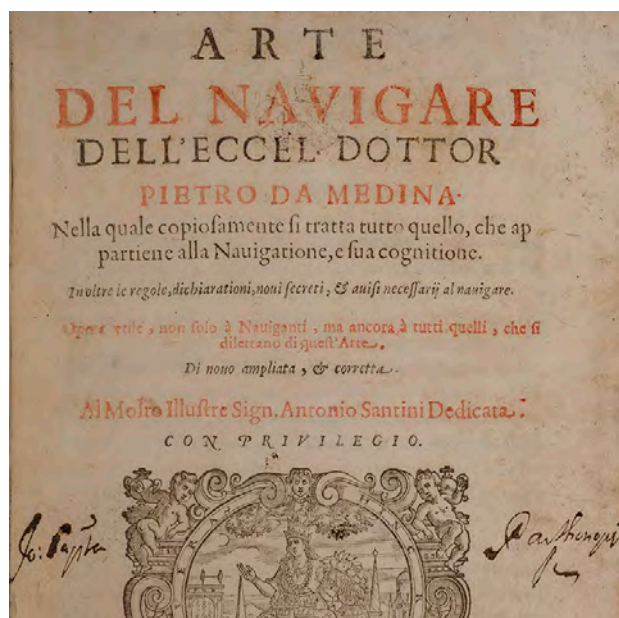 ARTE
DEL NAVIGARE
DELL'ECCEL. DOTTOR
PIETRO DA MEDINA.
Nella quale copiosamente si tratta tutto quello, che ap
partiene alla Nauigatione, e sua cognitione.
In oltre le regole, dichiarationi, noui secreti, & auisi necessarij al nauigare.
Opera vtile, non solo à Nauiganti, ma ancora à tutti quelli, che si
dilettano di quest'Arte.
Di nouo ampliata, & corretta.
Al Molto Illustre Sign. Antonio Santini Dedicata.
CON PRIVILEGIO.
Jo: